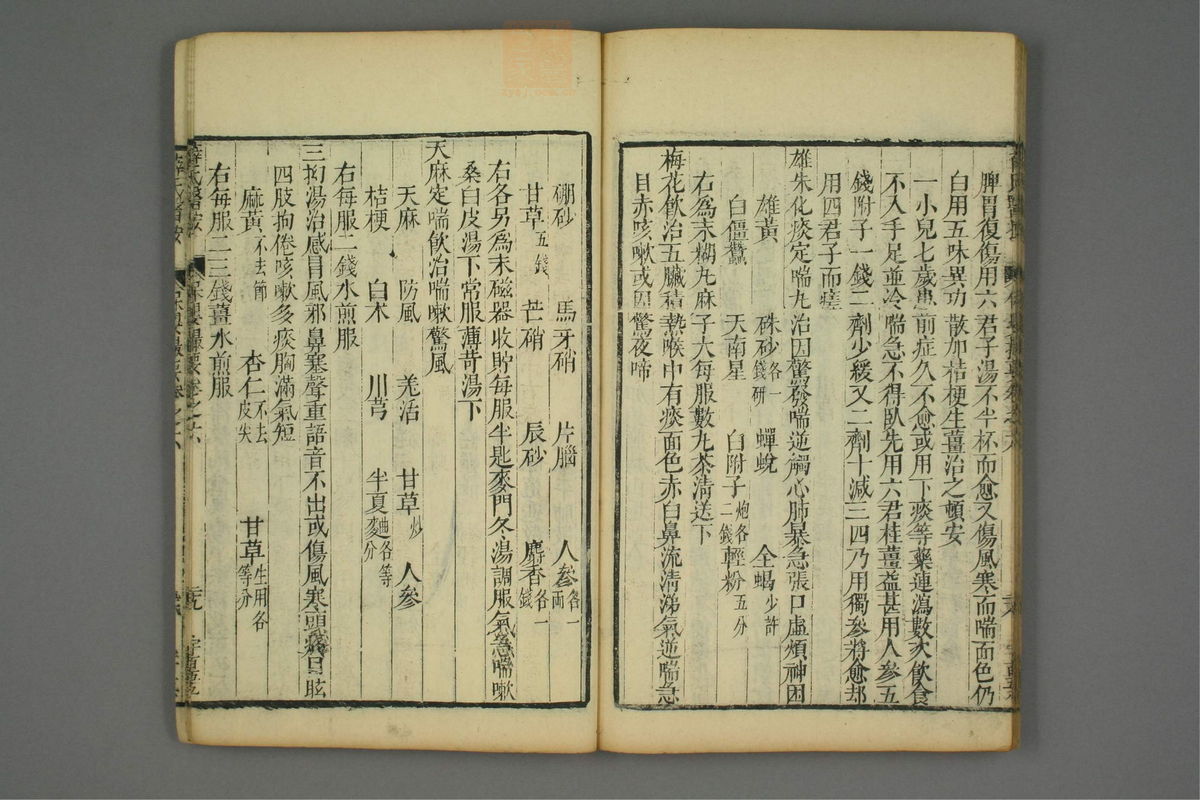 脾胃復傷用六君子湯不半杯而愈又傷風寒而喘面色仍
白用五味異功散加桔梗生薑治之頓安
一小兒七歲患前症久不愈或用下痰等藥連瀉數次飲食
不入手足並冷喘急不得臥先用六君桂薑益甚用人參五
錢附子一錢二劑少緩又二劑十減三四乃用獨參將愈却
用四君子而痊
雄朱化痰定喘九治因驚發喘逆觸心肺暴急張口虛煩神困
雄黃 硃砂各一錢研 蟬蛻 全蝎少許
白殭蠶 天南星 白附子炮各二錢 輕粉五分
右爲末糊丸麻子大每服數九茶清送下
梅花飲治五臟積熱喉中有痰面色赤白鼻流清涕氣逆喘急
目赤咳嗽或因驚夜啼
硼砂 馬牙硝 片腦 人參各一兩
甘草五錢 芒硝 辰砂 麝香各一錢
右各另爲末磁器收貯每服半匙麥門冬湯調服氣急喘嗽
桑白皮湯下常服薄苛湯下
天麻定喘飲治喘嗽驚風
天麻 防風 羌活 甘草炒 人參
桔梗 白术 川芎 半夏麯各等分
右每服二錢水煎服
三拗湯治感冒風邪鼻塞聲重語音不出或傷風寒頭痛目眩
四肢拘倦咳嗽多痰胸滿氣短
麻黃不去節 杏仁不去皮尖 甘草生用各等分
右每服二三錢薑水煎服